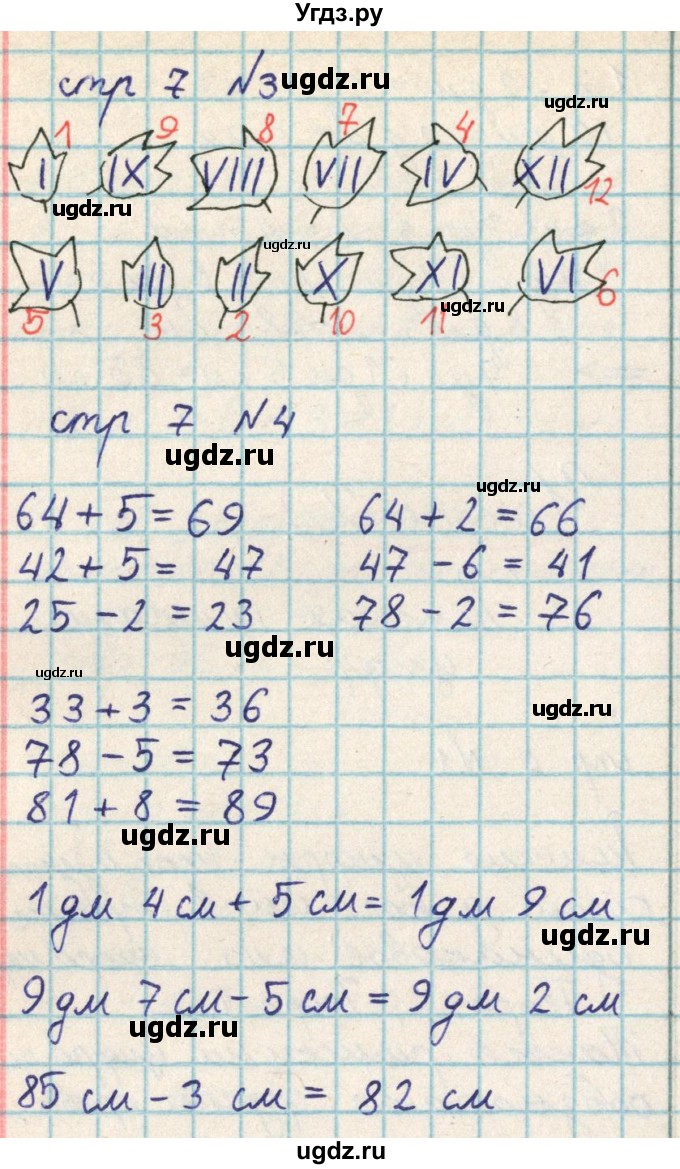 Угдз.ру
стр 7 №3 ugdz.ru
1 9 8 7 4 ugdz.ru
I IX VIII VII IV XII
ugdz.ru 12
ugdz.ru
V III II X XI VI
ugdz.ru
5 3 2 10 11 6
стр 7 №4
ugdz.ru
ugdz.ru
64 + 5 = 69 64 + 2 = 66
42 + 5 = 47 47 - 6 = 41
25 - 2 = 23 78 - 2 = 76
ugdz.ru
ugdz.ru
33 + 3 = 36 ugdz.ru
78 - 5 = 73
81 + 8 = 89
ugdz.ru
1 дм 4 см + 5 см = 1 дм 9 см
ugdz.ru
9 дм 7 см - 5 см = 9 дм 2 см
ugdz.ru
85 см - 3 см = 82 см
ugdz.ru